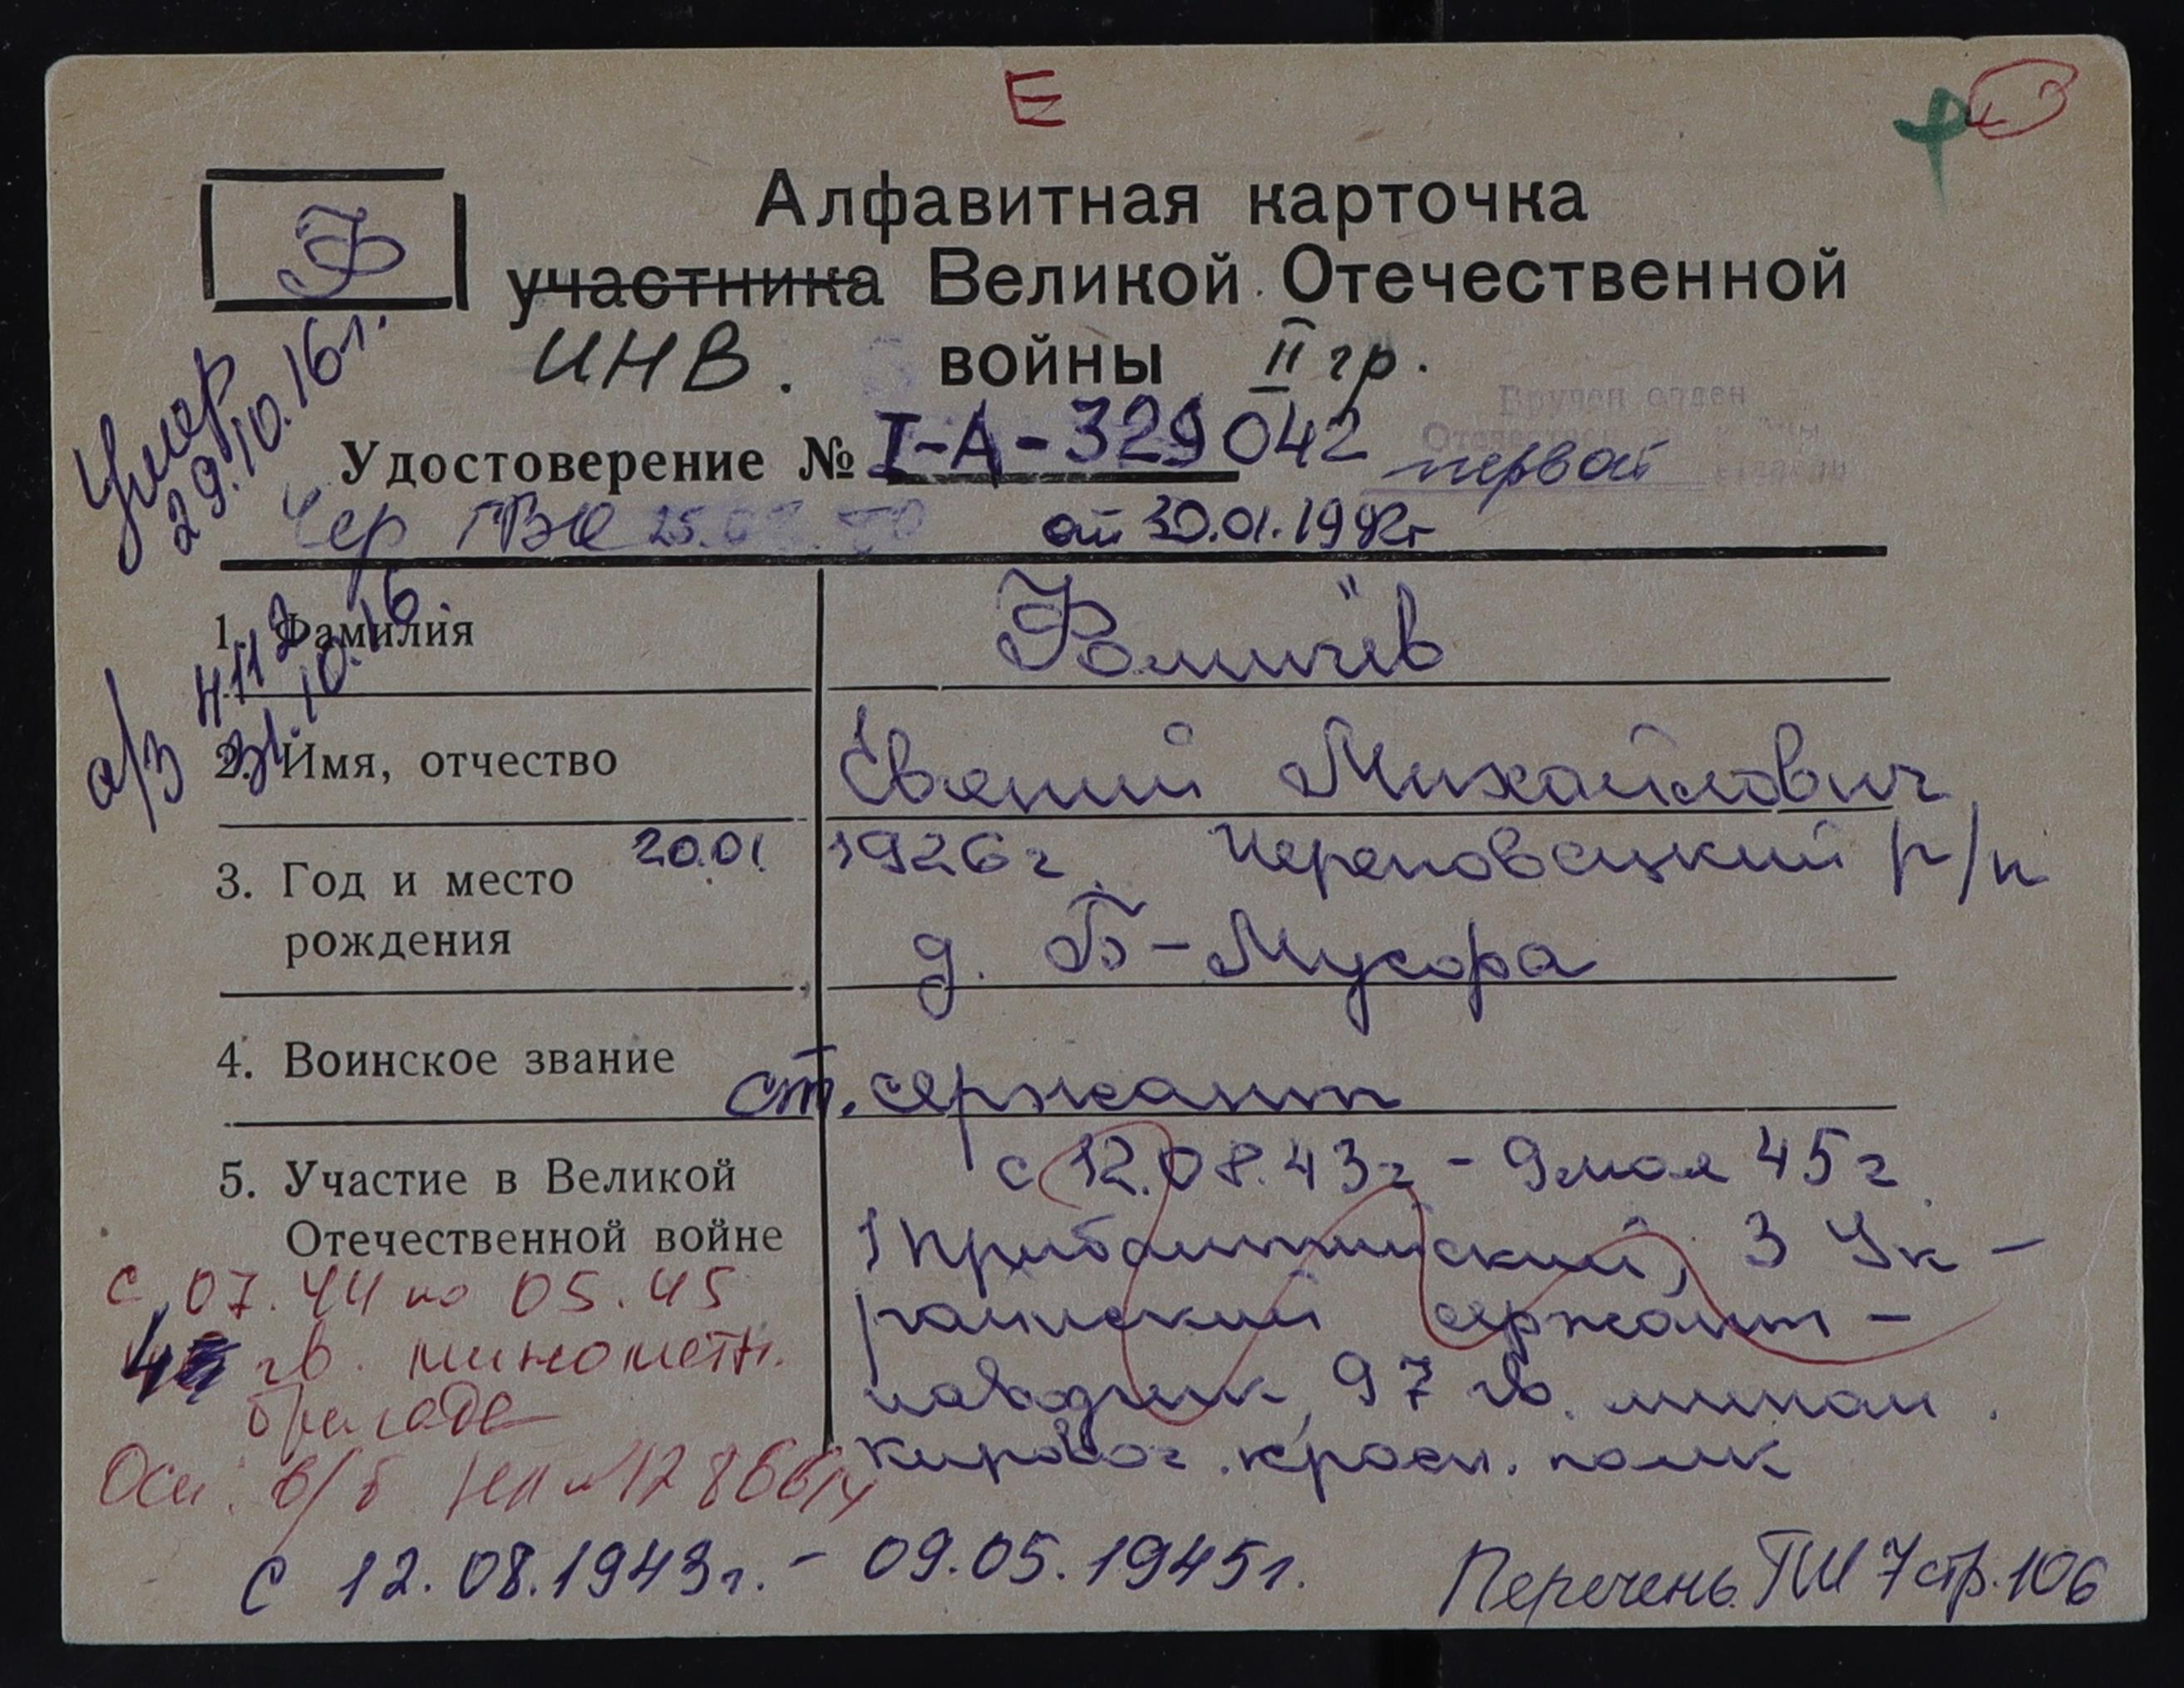 Е
Ф
Алфавитная карточка
участника Великой Отечественной
инв. войны II гр.
Вручен орден
Удостоверение № I-А-329042
первой
степени
Чер ГВК 25.
от 30.01.1992г
Умер
29.10.16г.
а/з 4112
31.10.16.
1. Фамилия Фомичёв
2. Имя, отчество Евгений Михайлович
3. Год и место 20.01. 1926г. Череповецкий р/н
рождения д. Б-Мусора
4. Воинское звание ст. сержант
5. Участие в Великой с 12.08.43г - 9 мая 45г.
Отечественной войне 1 Прибалтийский, 3 Ук-
с 07.44 по 05.45 раинский сержант-
гв. минометн. наводчик, 97 гв. мином.
бригаде кировог. красн. полк
Осн. в/б
с 12.08.1943г. - 09.05.1945г.
Перечень ГШ 7 стр. 106